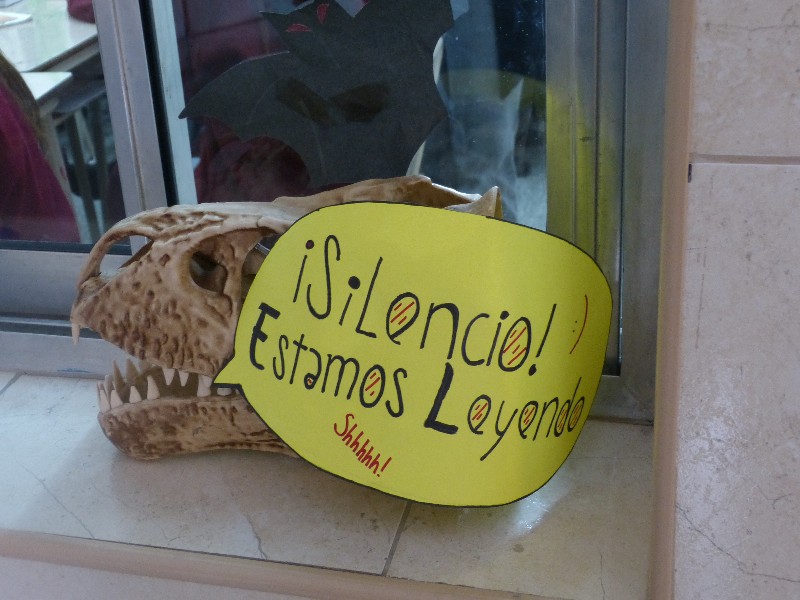 ¡SiLencio! :)
Estamos Leyendo
Shhhhh!